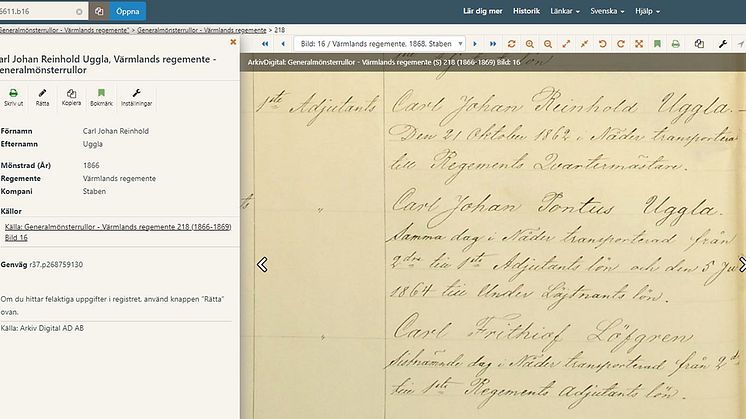 6611.b16
Öppna
Lär dig mer Historik Länkar Svenska Hjälp
Generalmönsterrullor" > Generalmönsterrullor - Värmlands regemente > 218
Bild: 16 / Värmlands regemente, 1868, Staben
arl Johan Reinhold Uggla, Värmlands regemente -
eneralmönsterrullor
Skriv ut Rätta Kopiera Bokmärk Inställningar
Förnamn Carl Johan Reinhold
Efternamn Uggla
Mönstrad (År) 1866
Regemente Värmlands regemente
Kompani Staben
Källor
Källa: Generalmönsterrullor - Värmlands regemente 218 (1866-1869)
Bild 16
Genväg r37.p268759130
Om du hittar felaktiga uppgifter i registret, använd knappen "Rätta"
ovan.
Källa: Arkiv Digital AD AB
ArkivDigital: Generalmönsterrullor - Värmlands regemente (S) 218 (1866-1869) Bild: 16
1ste Adjutants Carl Johan Reinhold Uggla.
Den 21 Oktober 1862 i Nåder transportera
till Regements Quartermästare.
" Carl Johan Pontus Uggla.
Samma dag i Nåder transporterad från
2dra till 1ste Adjutants lön och den 5 Ju
1864 till Under Löjtnants lön.
" Carl Frithiof Löfgren
Sistnämnde dag i Nåder transporterad från 2d
till 1ste Regements Adjutants lön.